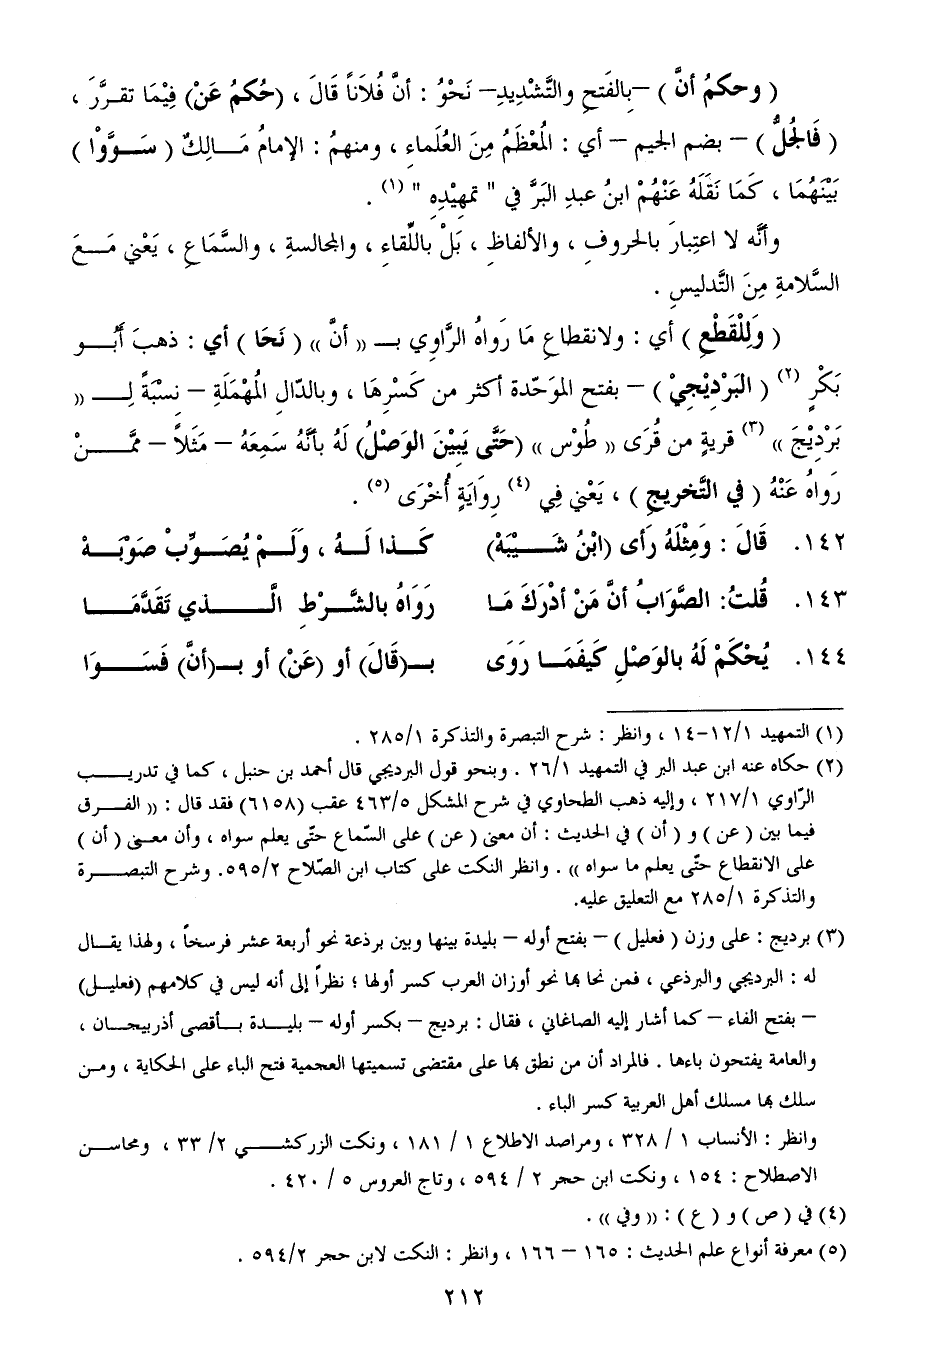 ( وحكمُ أنَّ ) –بالفَتحِ والتَّشديدِ– نَحْوُ : أنَّ فُلاَناً قَالَ ، (حُكمُ عَنْ) فِيْمَا تقرَّرَ ،
( فَالجُلُّ ) – بضم الجيم – أي : الْمُعْظَمُ مِنَ العُلَماءِ ، ومنهمُ : الإمامُ مَالِكٌ ( سَوَّوْا )
بَيْنَهُمَا ، كَمَا نَقَلَهُ عَنْهُمْ ابنُ عبدِ البَرَّ في " تمهيْدِهِ " (١) .
وأنَّه لا اعتِبارَ بالحروفِ ، والألفاظِ ، بَلْ باللِّقاءِ ، والمجالسةِ ، والسَّماعِ ، يَعْني مَعَ
السَّلامةِ مِنَ التَّدليسِ .
( وَلِلْقَطْعِ ) أي : ولانقطاعِ مَا رواهُ الرَّاوِي بـ « أنَّ » ( نَحَا ) أي : ذهبَ أَبُو
بَكْرٍ (٢) ( البَرْدِيْجِيْ ) – بفتح الموَحّدة أكثر من كَسْرِهَا ، وبالدّالِ الْمُهْمَلَةِ – نسْبَةً لِـ «
بَرْدِيْجَ » (٣) قريةٍ من قُرَى « طُوْس » (حَتَّى يَبِيْنَ الوَصْلُ) لَهُ بأنَّهُ سَمِعَهُ – مَثَلاً – مِمَّنْ
رواهُ عَنْهُ ( في التَّخريجِ ) ، يَعْني فِي (٤) رِوَايَةٍ أُخْرَى (٥) .
١٤٢. قَالَ : وَمِثْلَهُ رَأى (ابْنُ شَيْبَهْ) كَذا لَهُ ، وَلَمْ يُصَوِّبْ صَوْبَهْ
١٤٣. قُلتُ: الصَّوَابُ أنَّ مَنْ أدْرَكَ مَا رَوَاهُ بالشَّرْطِ الَّذي تَقَدَّمَا
١٤٤. يُحْكَمْ لَهُ بالوَصْلِ كَيفَمَا رَوَى بـ(قَالَ) أو (عَنْ) أو بـ(أنَّ) فَسَوَا
(١) التمهيد ١/١٢–١٤ ، وانظر : شرح التبصرة والتذكرة ١/٢٨٥ .
(٢) حكاه عنه ابن عبد البر في التمهيد ١/٢٦ . وبنحو قول البرديجي قال أحمد بن حنبل ، كما في تدريب
الرّاوي ١/٢١٧ ، وإليه ذهب الطحاوي في شرح المشكل ٥/٤٦٣ عقب (٦١٥٨) فقد قال : « الفرق
فيما بين ( عن ) و ( أن ) في الحديث : أن معنى ( عن ) على السّماع حتّى يعلم سواه ، وأن معنى ( أن )
على الانقطاع حتّى يعلم ما سواه » . وانظر النكت على كتاب ابن الصّلاح ٢/٥٩٥. وشرح التبصرة
والتذكرة ١/٢٨٥ مع التعليق عليه.
(٣) برديج : على وزن ( فعليل ) – بفتح أوله – بليدة بينها وبين برذعة نحو أربعة عشر فرسخاً ، ولهذا يقال
له : البرديجي والبرذعي ، فمن نحا بها نحو أوزان العرب كسر أولها ؛ نظراً إلى أنه ليس في كلامهم (فعليل)
– بفتح الفاء – كما أشار إليه الصاغاني ، فقال : برديج – بكسر أوله – بليدة بأقصى أذربيجان ،
والعامة يفتحون باءها . فالمراد أن من نطق بها على مقتضى تسميتها العجمية فتح الباء على الحكاية ، ومن
سلك بها مسلك أهل العربية كسر الباء .
وانظر : الأنساب ١ / ٣٢٨ ، ومراصد الاطلاع ١ / ١٨١ ، ونكت الزركشي ٢/ ٣٣ ، ومحاسن
الاصطلاح : ١٥٤ ، ونكت ابن حجر ٢ / ٥٩٤ ، وتاج العروس ٥ / ٤٢٠ .
(٤) في ( ص ) و ( ع ) : « وفي » .
(٥) معرفة أنواع علم الحديث : ١٦٥ – ١٦٦ ، وانظر : النكت لابن حجر ٢/٥٩٤ .
٢١٢